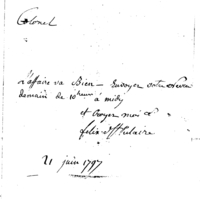 Colonel
l'affaire va Bien — Envoyer votre
demain de 10 heures à midy
et croyez moi
felix
21 juin 1797